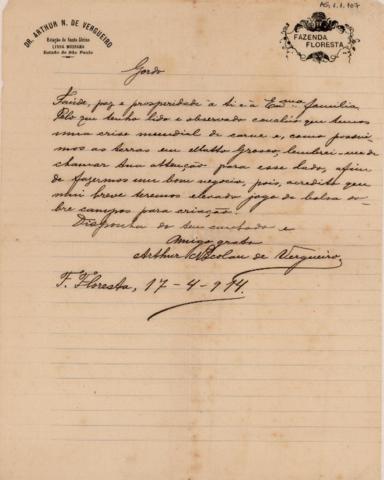 AG, 1.1.107
DR. ARTHUR N. DE VERGUEIRO
Estação de Santo Aleixo
LINHA MOGYANA
Estado de São Paulo
FAZENDA
FLORESTA
Gordo
Saúde, paz e prosperidade a ti e á Exma familia.
Pelo que tenho lido e observado concluo que temos
uma crise mundial de carne e, como possui-
mos as terras em Matto Grosso, lembrei-me de
chamar tua attenção para esse lado, afim
de fazermos um bom negocio, pois, acredito que
mui breve teremos elevado jogo de bolsa so-
bre campos para criação.
Disponha do seu cunhado e
amigo grato
Arthur Nicolau de Vergueiro,
F. Floresta, 17-4-914.